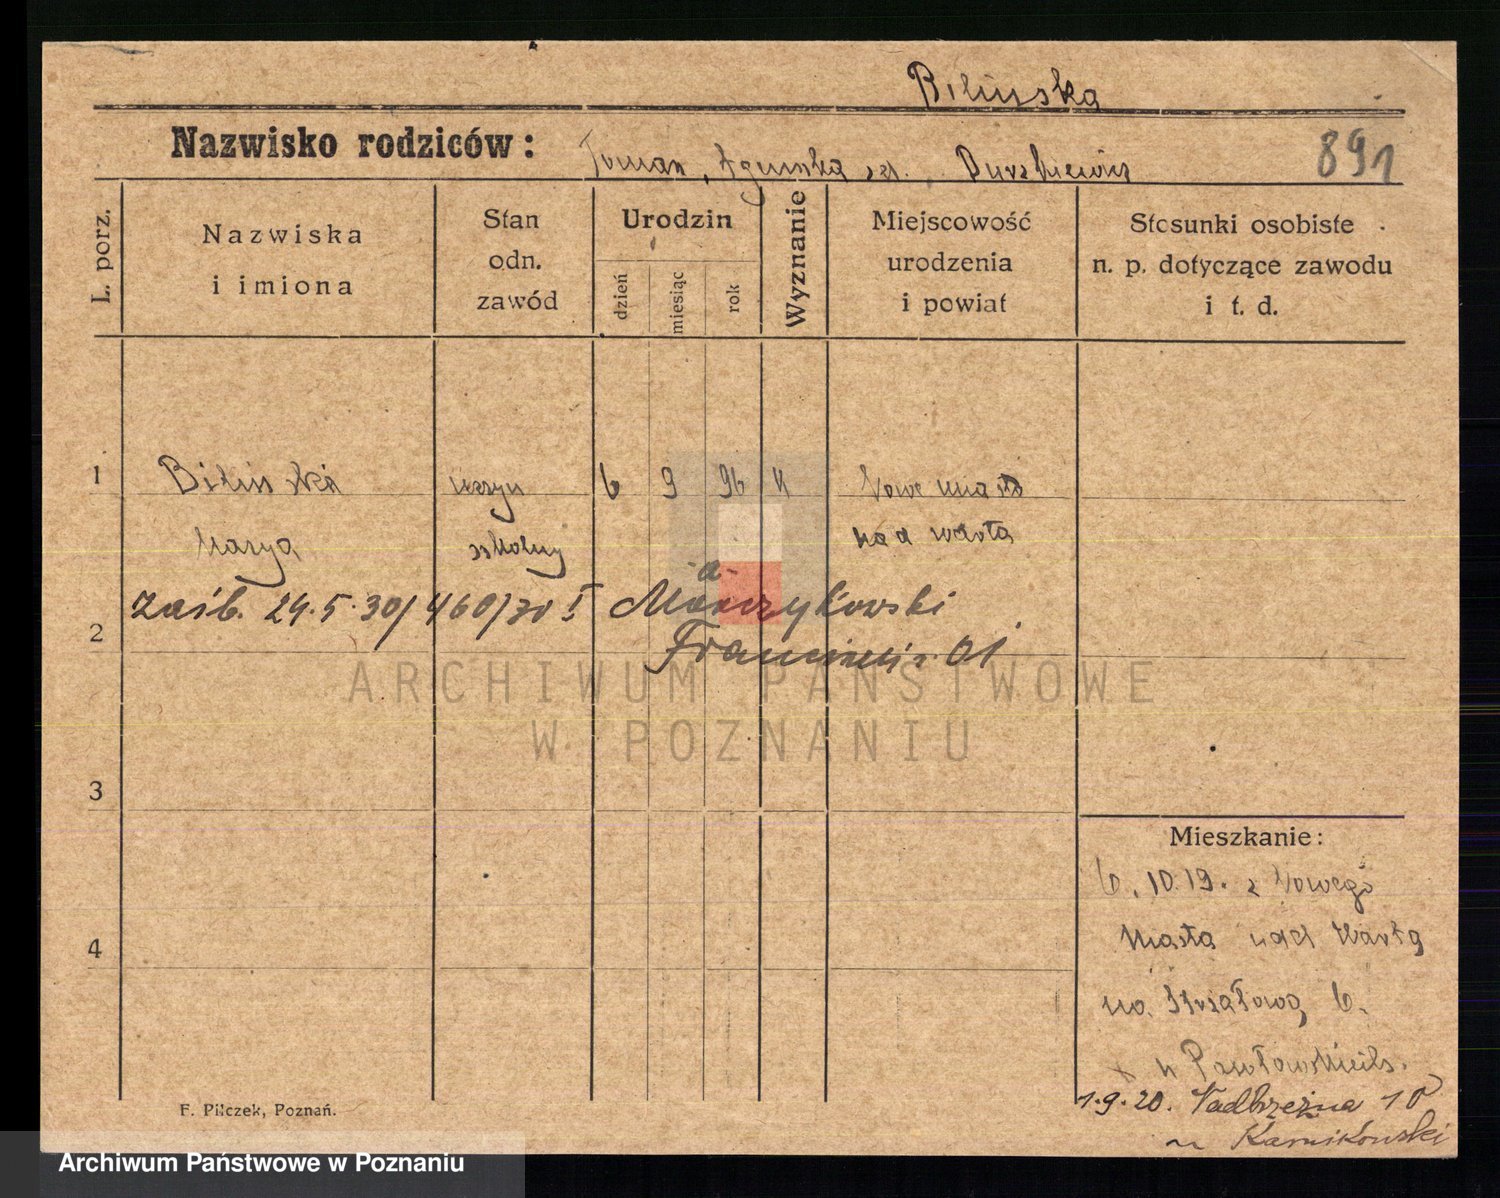 Bilinska
Nazwisko rodziców:
Roman, Agnieszka
891
L. porz.
Nazwiska
i imiona
Stan
odn.
zawód
Urodzin
dzień
miesiąc
rok
Wyznanie
Miejscowość
urodzenia
i powiat
Stosunki osobiste
n. p. dotyczące zawodu
i t. d.
1
Bilinska
naucz.
6 9 96 k
Nowe miasto
Marya
szkolny
nad wartą
zaśb. 24.5.30/460/30 I
2
Franciszek 01
ARCHIWUM PAŃSTWOWE
W POZNANIU
3
Mieszkanie:
6.10.19. z Nowego
4
Miasta nad Wartą
na Strzałową 6.
u
1.9.20. Nadbrzeżna 10
u Karnikowski
F. Pilczek, Poznań.
Archiwum Państwowe w Poznaniu